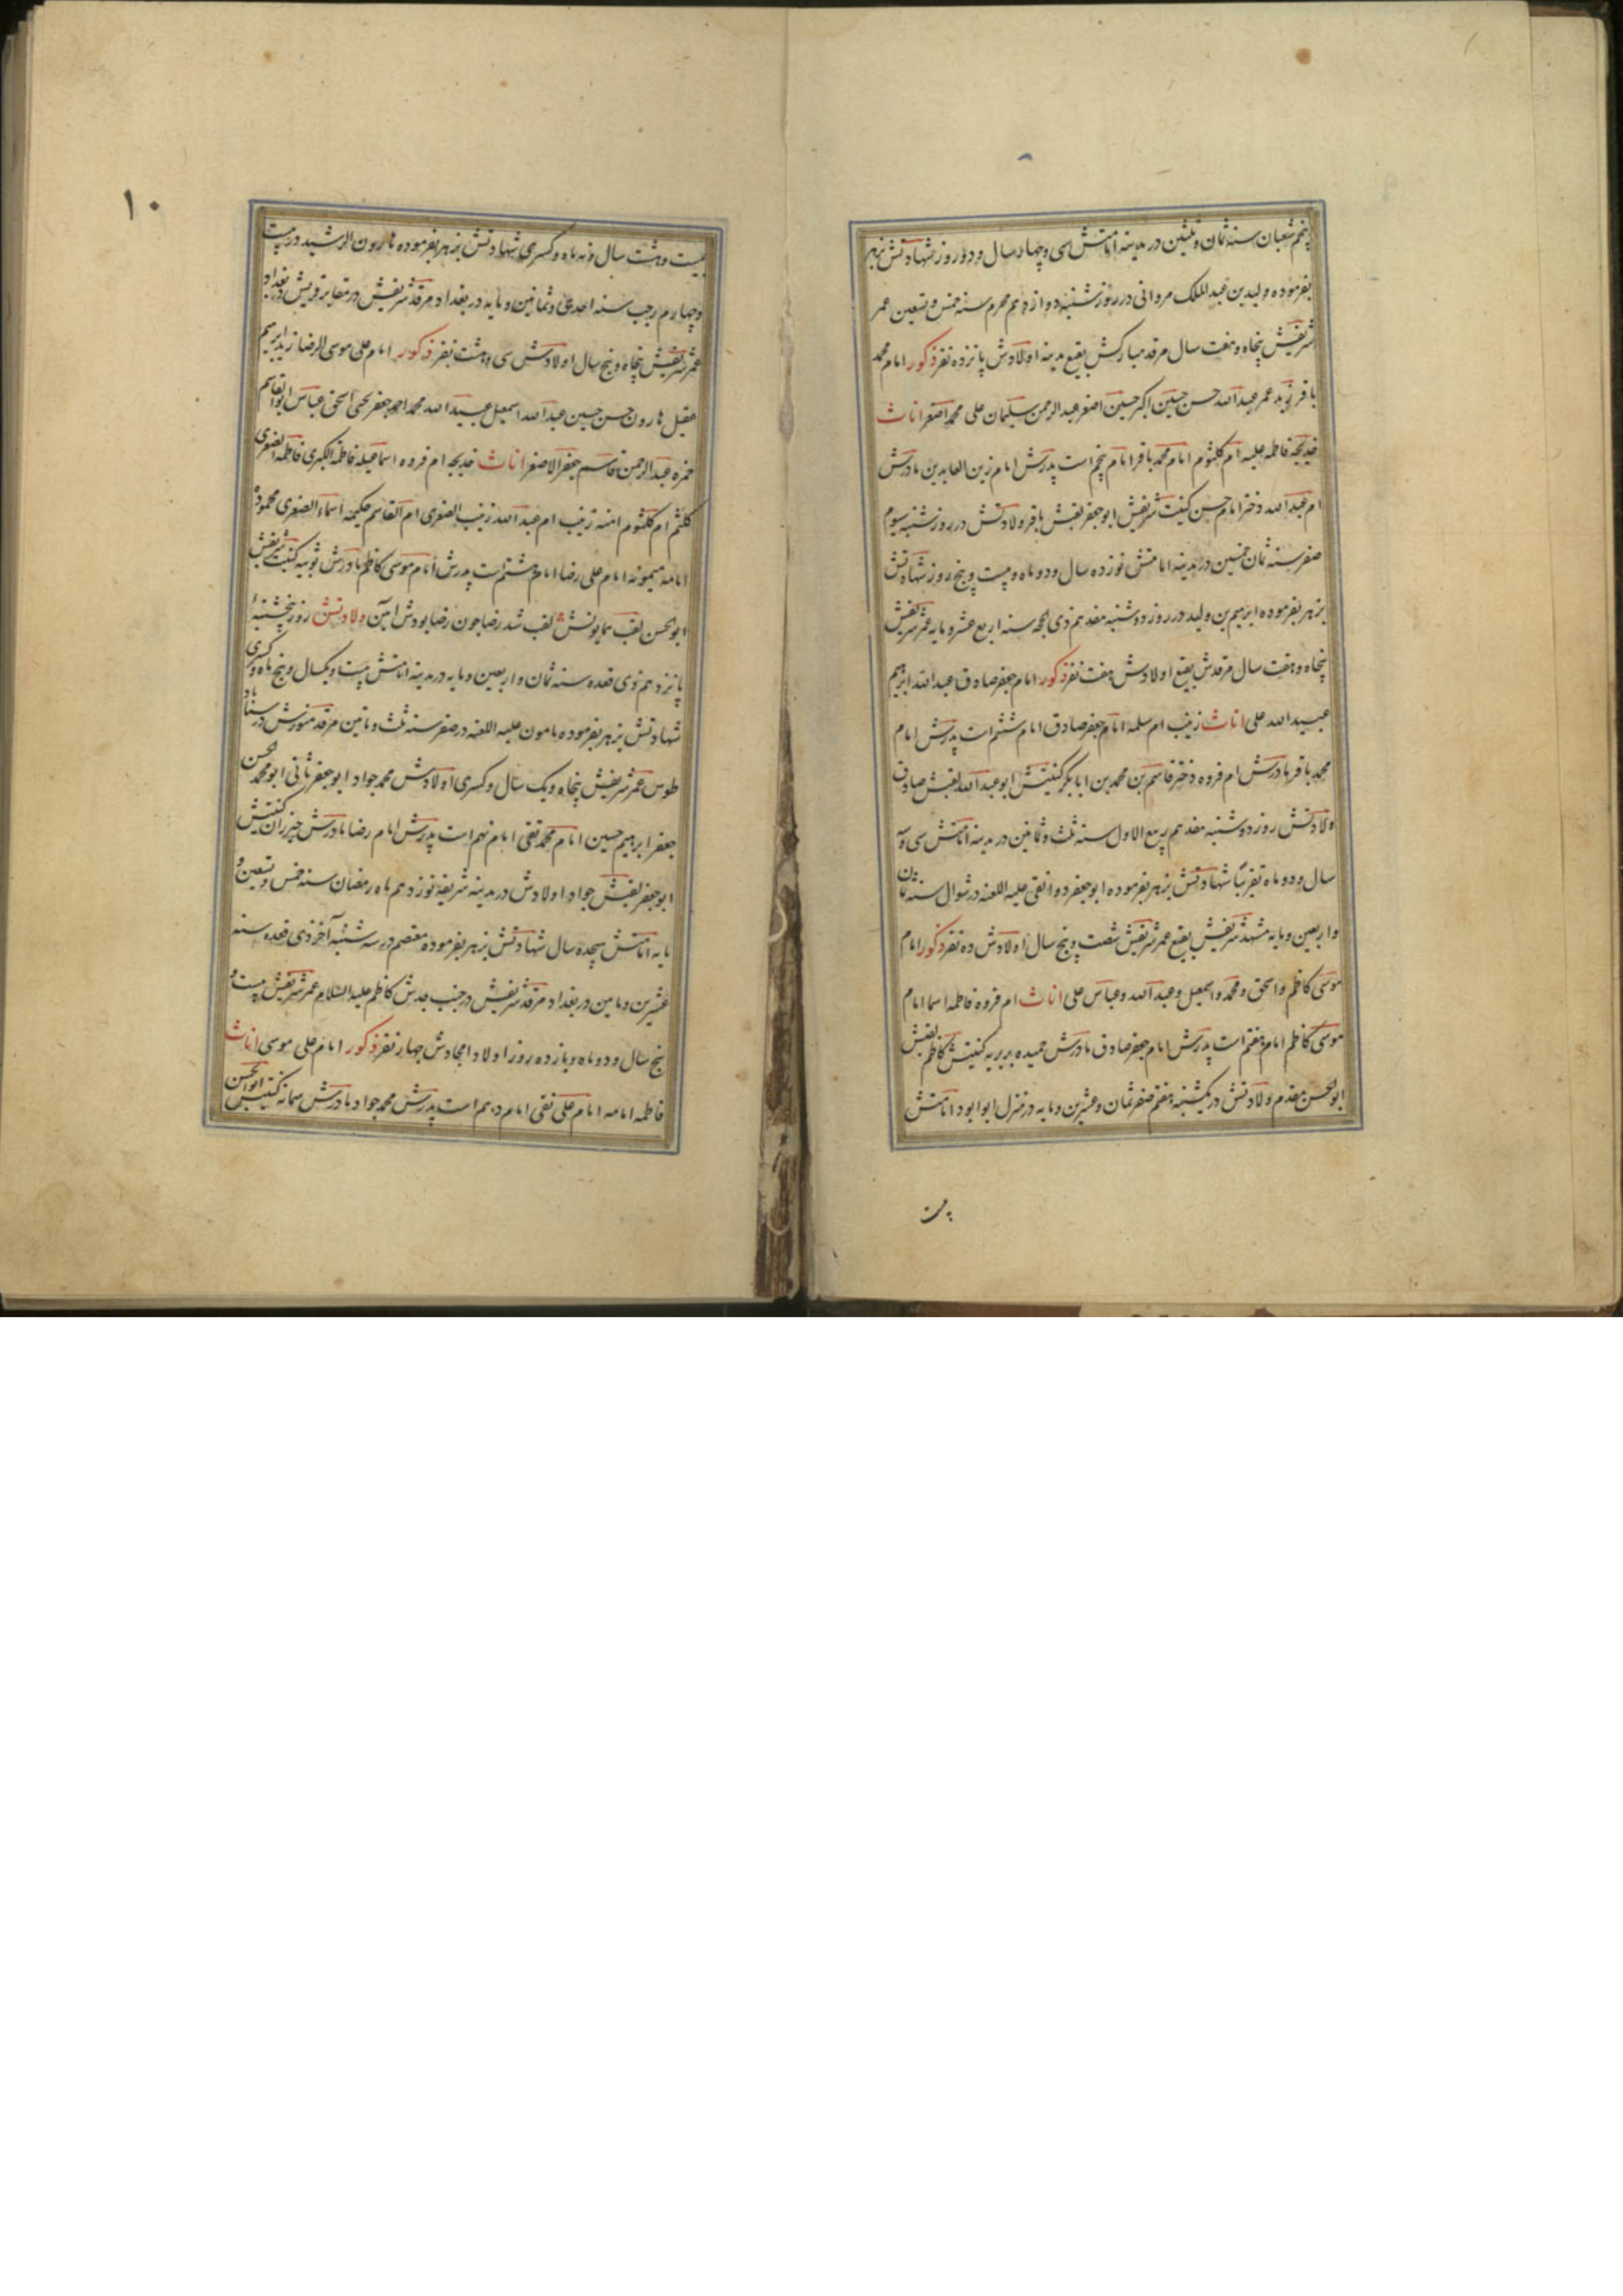 پنجم شعبان سنه ثمان و ثلثین در مدینه امامتش سی و چهار سال و دو روز شهادتش بزهر
بفرموده ولید بن عبدالملک مروانی در روز شنبه دوازدهم محرم سنه خمس و تسعین عمر
شریفش پنجاه و هفت سال مرقد مبارکش بقیع مدینه اولادش پانزده نفر ذکور امام محمد
باقر زید عمر عبدالله حسن حسین اکبر حسین اصغر عبدالرحمن سلیمان علی محمد اصغر اناث
خدیجه فاطمه علیه ام کلثوم امام محمد باقر امام پنجم است پدرش امام زین العابدین مادرش
ام عبدالله دختر امام حسن کنیت شریفش ابو جعفر لقبش باقر ولادتش در روز شنبه سیوم
صفر سنه ثمان خمسین در مدینه امامتش نوزده سال و دو ماه و بیست و پنج روز شهادتش
بزهر بفرموده ابرهیم بن ولید در روز دوشنبه هفدهم ذی الحجه سنه اربع عشر و مایه عمر شریفش
پنجاه و هفت سال مرقدش بقیع اولادش هفت نفر ذکور امام جعفر صادق عبدالله ابرهیم
عبیدالله علی اناث زینب ام سلمه امام جعفر صادق امام ششم است پدرش امام
محمد باقر مادرش ام فروه دختر قاسم بن محمد بن ابابکر کنیتش ابو عبدالله لقبش صادق
ولادتش روز دوشنبه هفدهم ربیع الاول سنه ثلث و ثمانین در مدینه امامتش سی و سه
سال و دو ماه تقریبًا شهادتش بزهر بفرموده ابو جعفر دوانقی علیه اللعنه در شوال سنه ثمان
و اربعین و مایه مشهد شریفش بقیع عمر شریفش شصت و پنج سال اولادش ده نفر ذکور امام
موسی کاظم و اسحق و محمد و اسمعیل و عبدالله و عباس علی اناث ام فروه فاطمه اسما امام
موسی کاظم امام هفتم است پدرش امام جعفر صادق مادرش حمیده بربریه کنیتش کاظم لقبش
ابوالحسن مقدم ولادتش در یکشنبه هفتم صفر ثمان و عشرین و مایه در منزل ابوا بود امامتش
بیست
۱۰
بیست و هشت سال و نه ماه و کسری شهادتش بزهر بفرموده هارون الرشید در بیست
و چهارم رجب سنه احدی و ثمانین و مایه در بغداد مرقد شریفش در مقابر قریش در بغداد
عمر شریفش پنجاه و پنج سال اولادش سی و هشت نفر ذکور امام علی موسی الرضا زید ابرهیم
عقیل هارون حسن حسین عبدالله اسمعیل عبیدالله محمد احمد جعفر یحیی اسحق عباس ابوالقاسم
حمزه عبدالرحمن قاسم جعفر الاصغر اناث خدیجه ام فروه اسما علیه فاطمة الکبری فاطمة الصغری
کلثم ام کلثوم امنه زینب ام عبدالله زینب الصغری ام القاسم حکیمه اسماء الصغری محموده
امامه میمونه امام علی رضا امام هشتم است پدرش امام موسی کاظم مادرش ثوبیه کنیت شریفش
ابوالحسن لقب همایونش لقب شد رضا چون رضا بودش آیین ولادتش روز پنجشنبه
پانزدهم ذی قعده سنه ثمان و اربعین و مایه در مدینه امامتش بیست و یکسال و پنج ماه و کسری
شهادتش بزهر بفرموده مامون علیه اللعنه در صفر سنه ثلث و مایتین مرقد منورش در سناباد
طوس عمر شریفش پنجاه و یک سال و کسری اولادش محمد جواد ابو جعفر ثانی ابو محمد حسن
جعفر ابرهیم حسین امام محمد تقی امام نهم است پدرش امام رضا مادرش خیزران کنیتش
ابو جعفر لقبش جواد اولادش در مدینه شریفه نوزدهم ماه رمضان سنه خمس و تسعین و
مایه امامتش هیجده سال شهادتش بزهر بفرموده معتصم در سه شنبه آخر ذی قعده سنه
عشرین و مایتین در بغداد مرقد شریفش در جنب جدش کاظم علیه السلام عمر شریفش بیست و
پنج سال و دو ماه و یازده روز اولاد امجادش چهار نفر ذکور امام علی موسی اناث
فاطمه امامه امام علی نقی امام دهم است پدرش محمد جواد مادرش سمانه کنیتش ابوالحسن